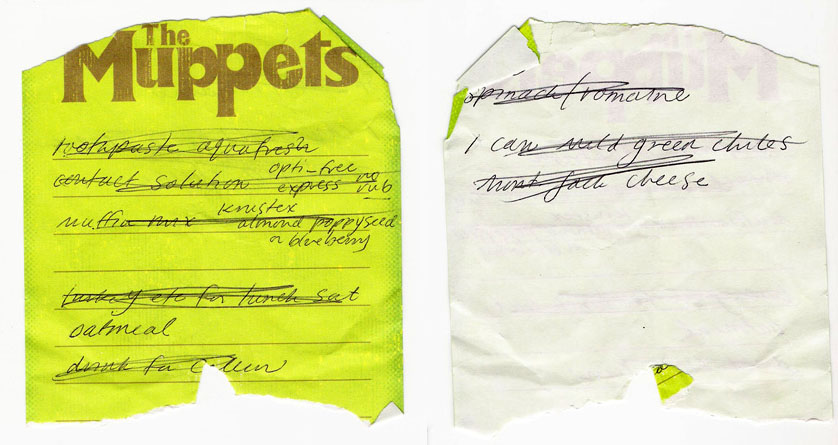 The
Muppets
toothpaste aquafresh
contact solution opti-free
express no
rub
muffin mix krustex
almond poppyseed
or blueberry
turkey etc for lunch sat
oatmeal
drink for Colleen
spinach/romaine
1 can mild green chiles
mont jack cheese